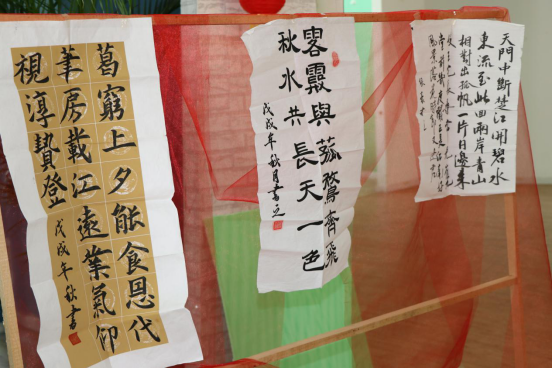 葛窮上夕能食恩代
筆房載江遠業氣仰
視淳贄登
戊戌年秋書
落霞與孤鶩齊飛
秋水共長天一色
戊戌年秋月書之
天門中斷楚江開碧水
東流至此回兩岸青山
相對出孤帆一片日邊來